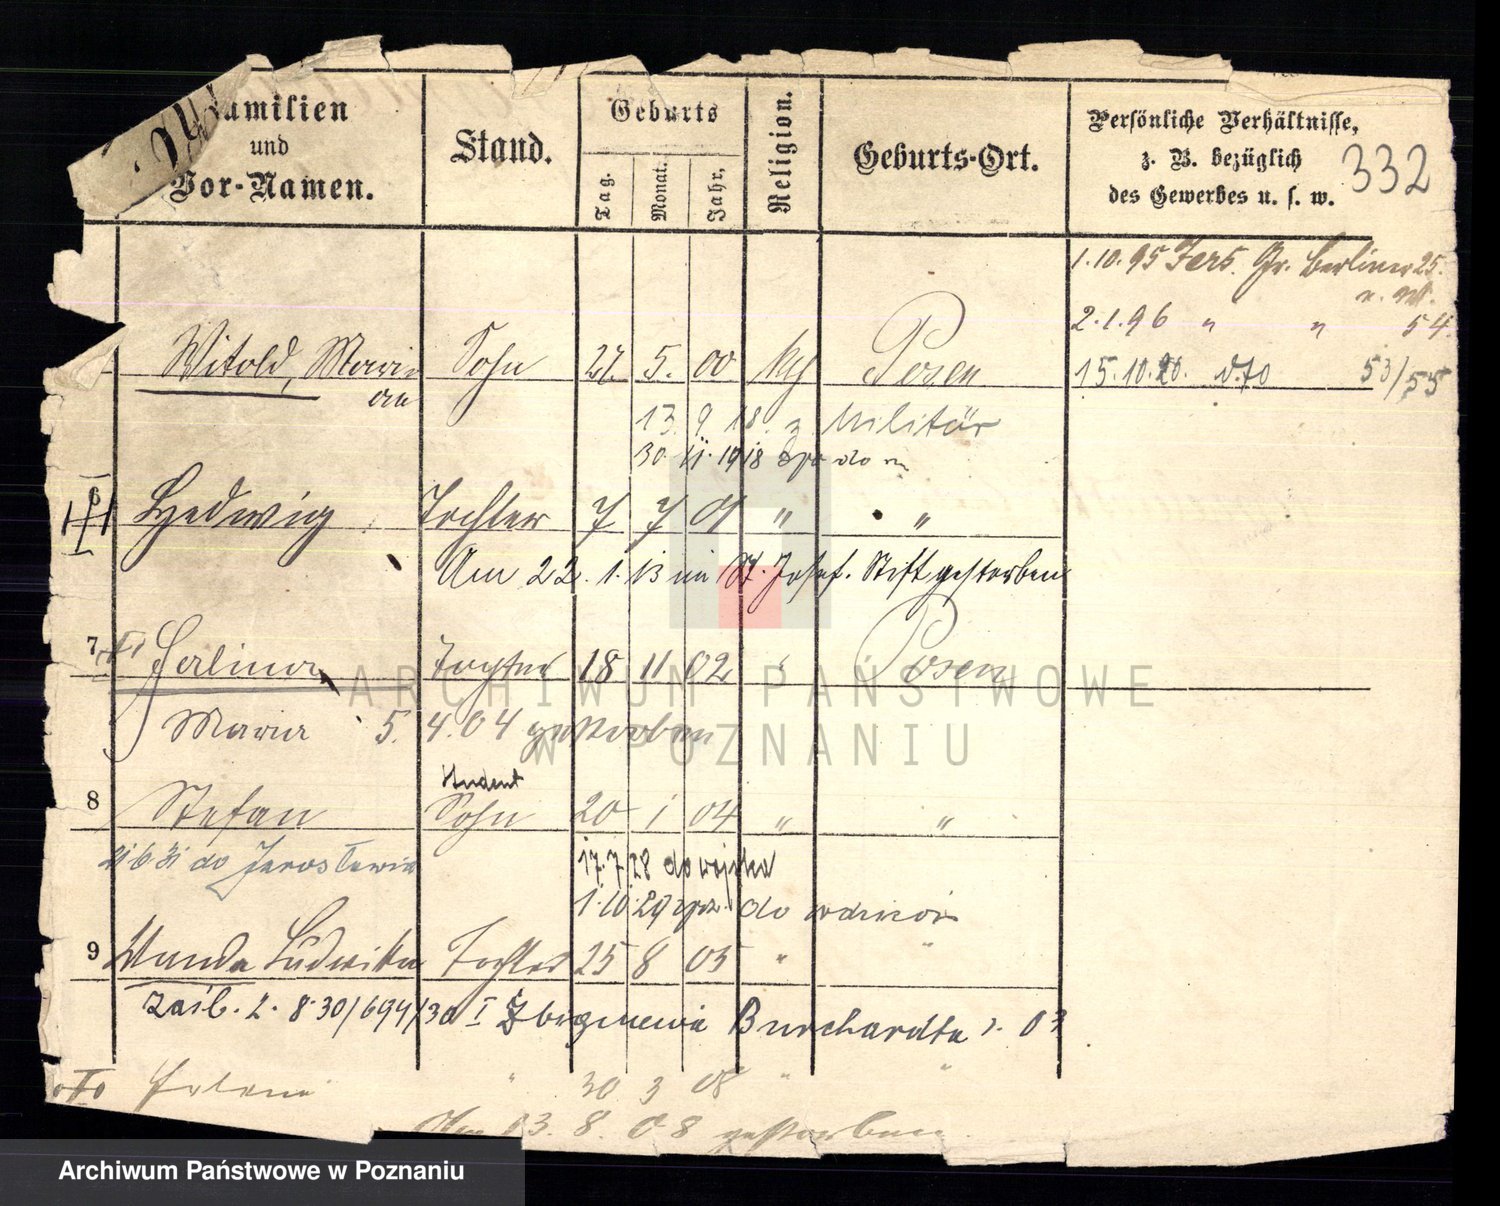 Familien
und
Vor-Namen.
Stand.
Geburts
Tag.
Monat.
Jahr,
Religion.
Geburts-Ort.
Persönliche Verhältnisse,
z. B. bezüglich
des Gewerbes u. s. w.
332
1.10.95 Gr. Berliner 25.
2.1.96 " " 54.
Witold, Marian Sohn 27. 5. 00 kth Posen
15.10.20. dto 53/55
13. 9 18. z Militär
30. 11. 1918
6 Hedwig Tochter 7 7 01 " "
Am 22. 1. 13 im St. Josef. Stift gestorben
7 Halina Tochter 18 11 02 " Posen
Maria 5. 4. 04 gestorben
Student
8 Stefan Sohn 20 1 04 " "
21 6 31 do Jarosławia
17.7.28 do wojska
1.10.29 do
9 Wanda Ludwika Tochter 25 8 05 " "
zaśb. 2. 8. 30/694/30 I Zbigniewa Burchardta r. 03
Helena " 30 3 08 " "
Am 13. 8. 08 gestorben.
ARCHIWUM PAŃSTWOWE
W POZNANIU
Archiwum Państwowe w Poznaniu